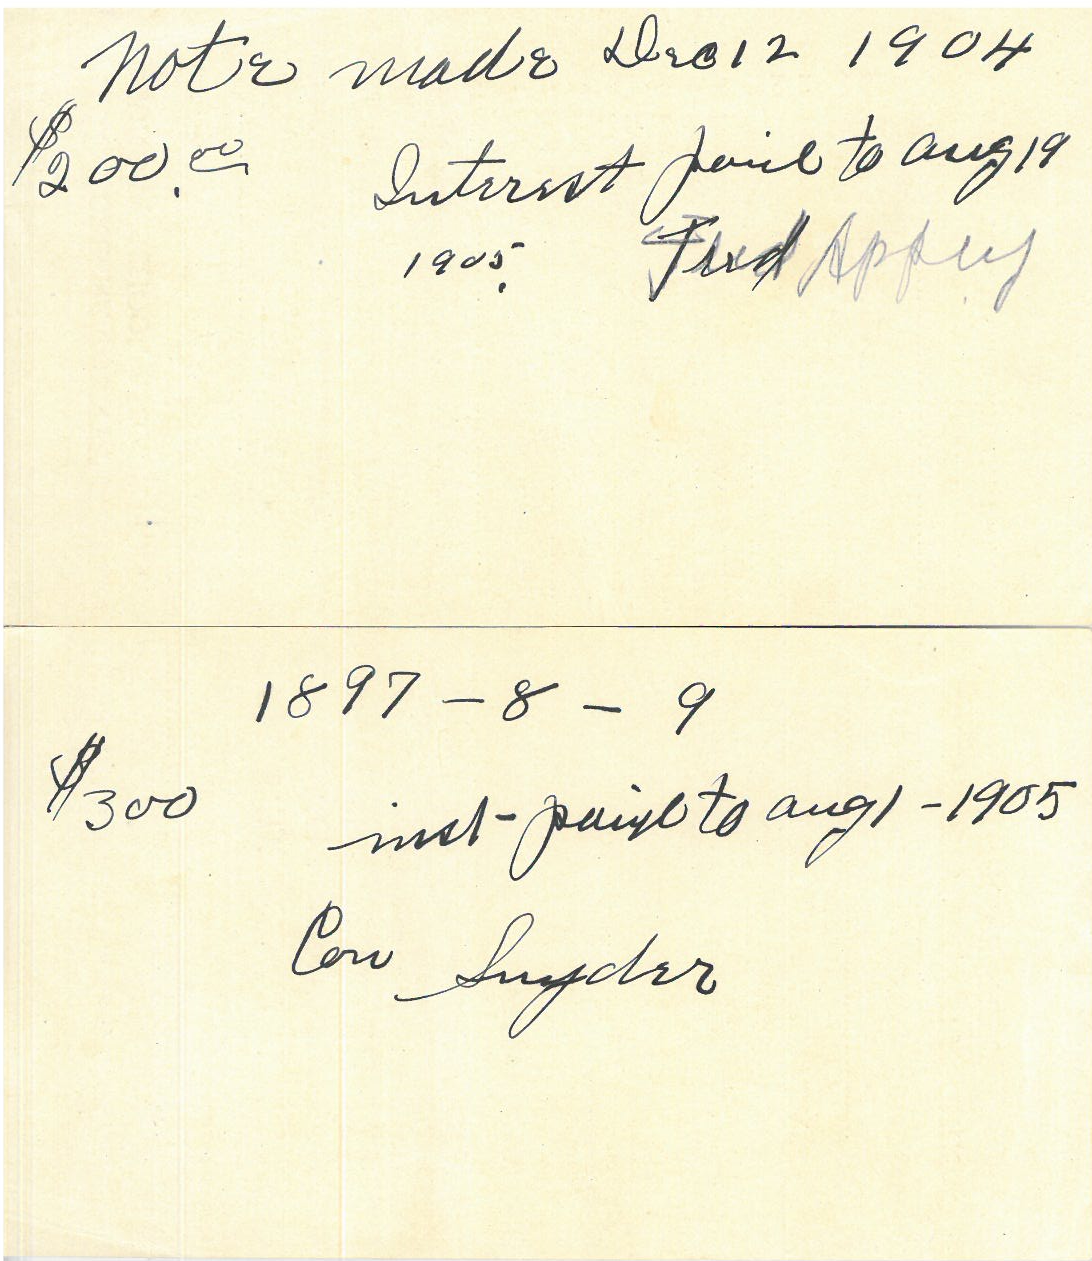 Note made Dec 12 1904
$200.00 Interest paid to Aug 19
1905. Fred Appley
1897 - 8 - 9
$300 inst - paid to Aug 1 - 1905
Con Snyder